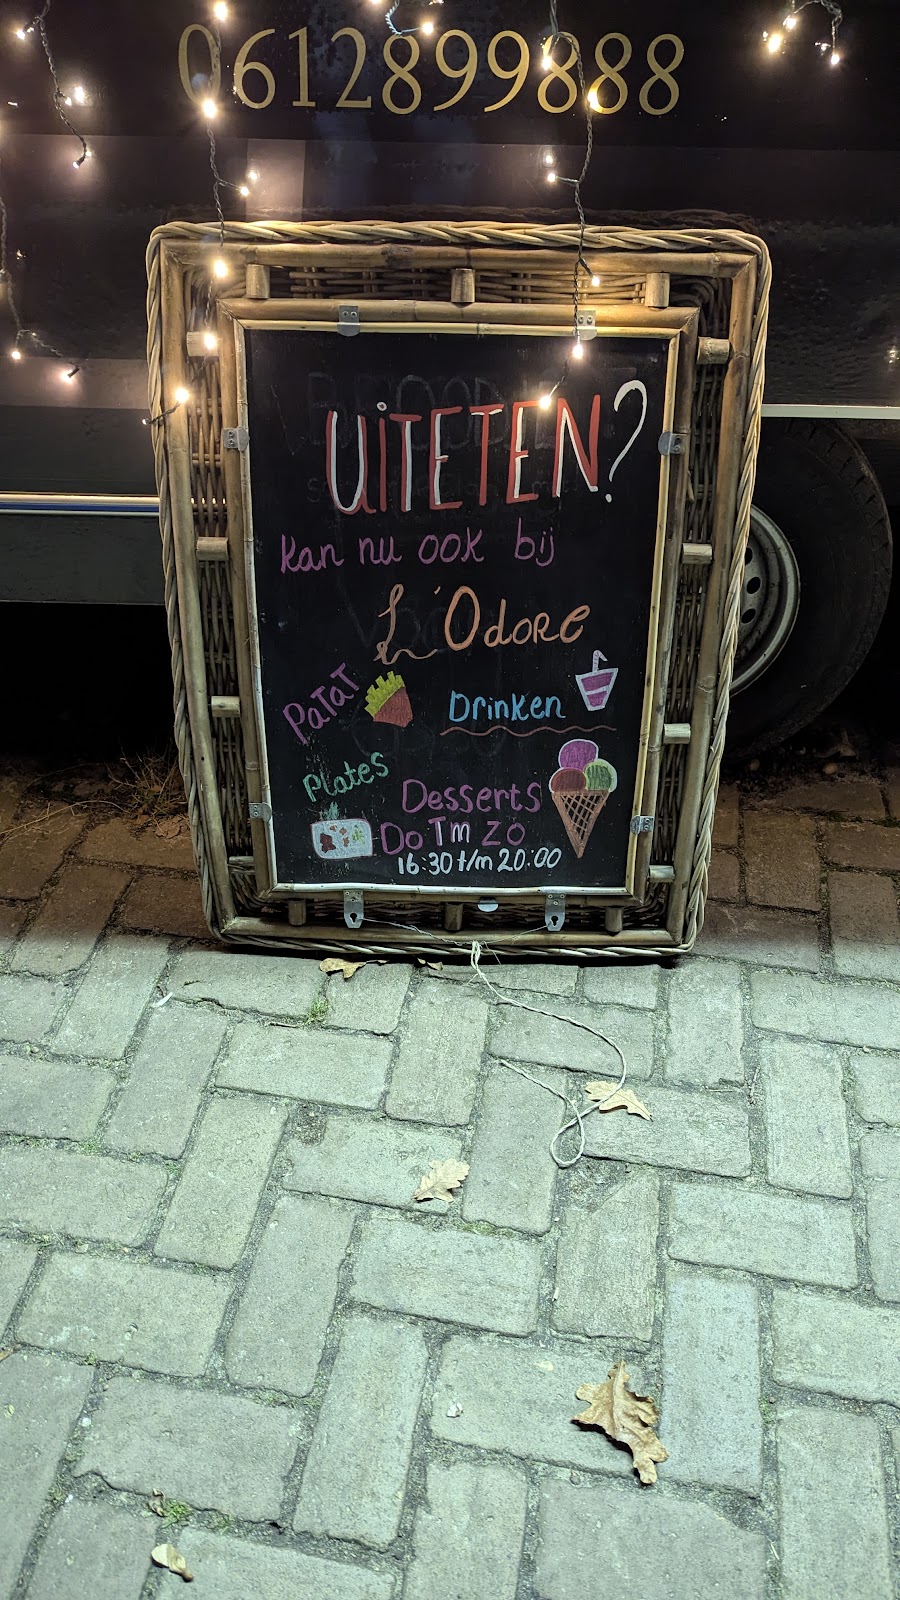 0612899888
UiTETEN?
kan nu ook bij
L'Odore
PaTaT
Drinken
Plates
Desserts
Do Tm Zo
16:30 t/m 20:00